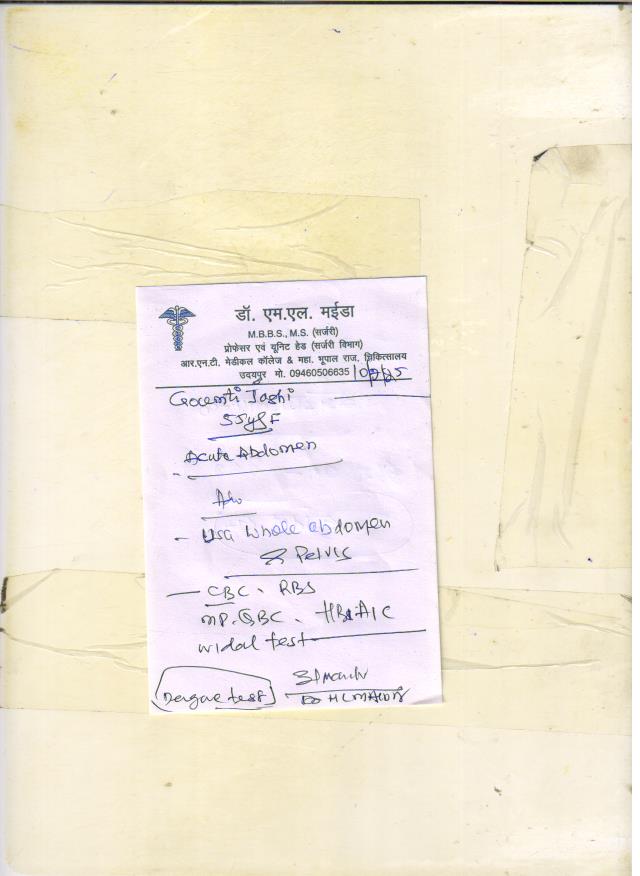 डॉ. एम.एल. मईडा
M.B.B.S., M.S. (सर्जरी)
प्रोफेसर एवं यूनिट हेड (सर्जरी विभाग)
आर.एन.टी. मेडीकल कॉलेज & महा. भूपाल राज. चिकित्सालय
उदयपुर मो. 09460506635
Joshi
Acute Abdomen
Adv
- USG Whole abdomen
& Pelvis
- CBC. RBS
MP. QBC. HBA1C
widal test
Dengue test